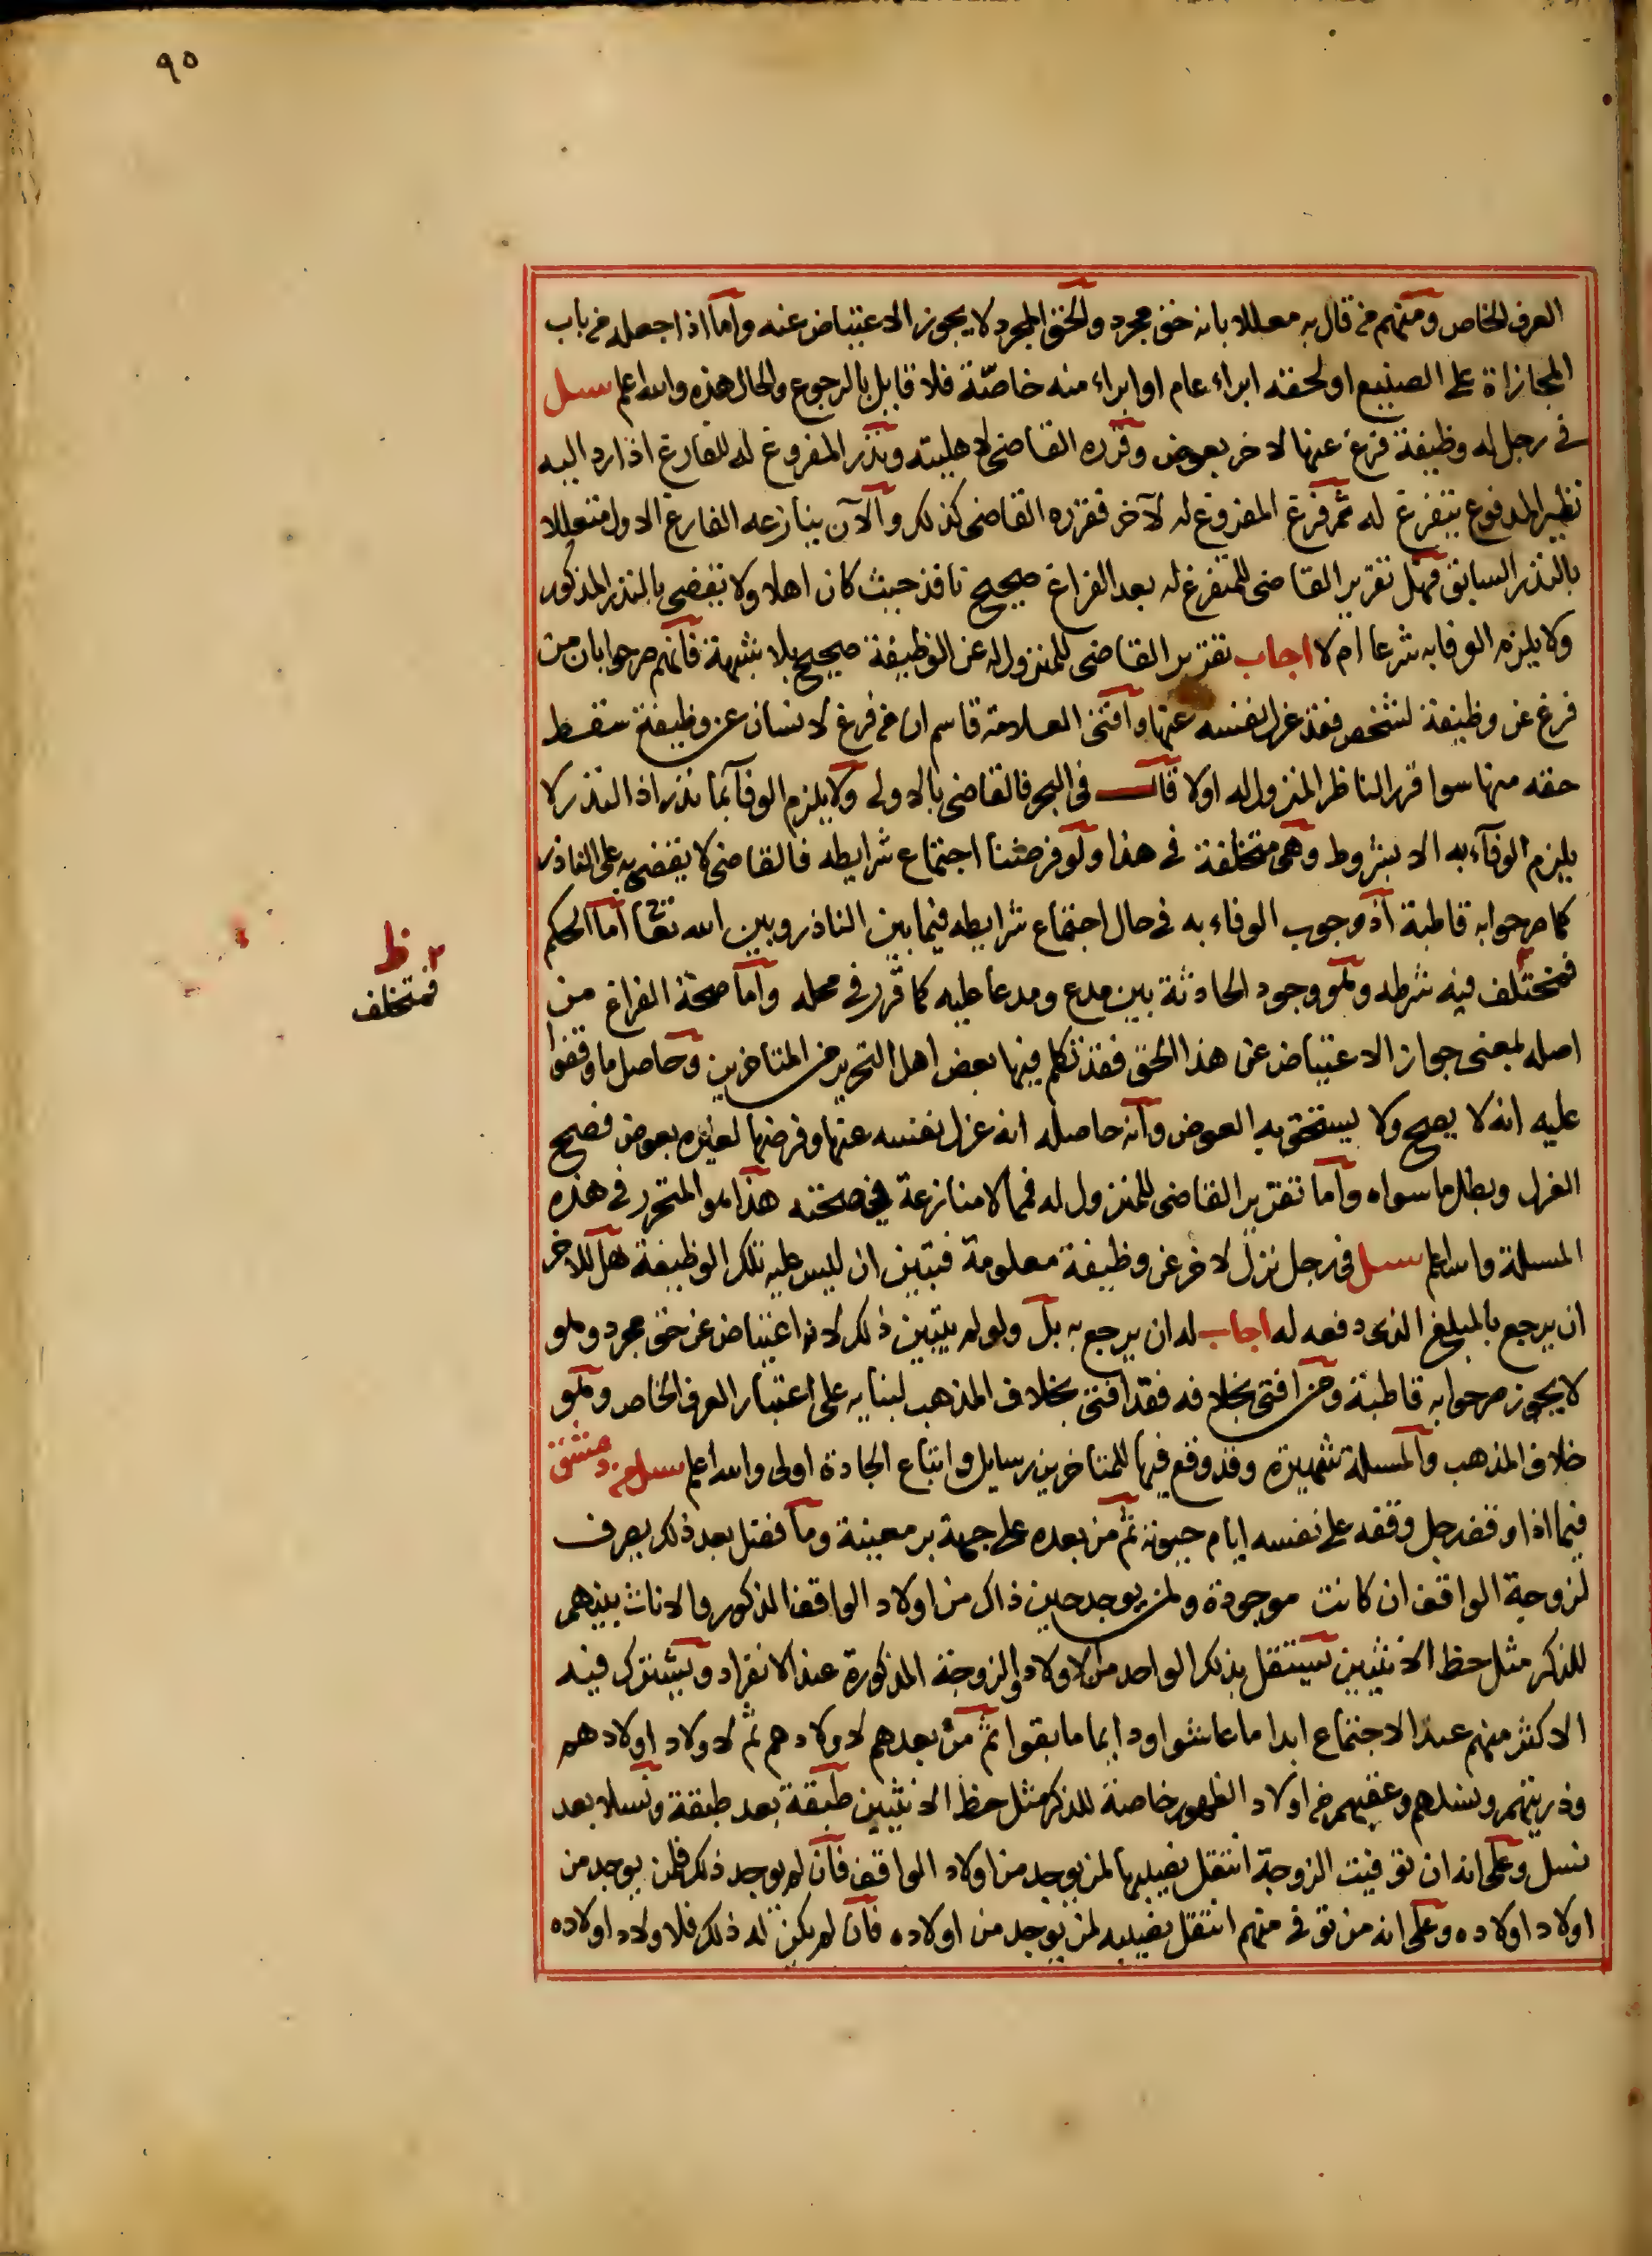 ٩٥
العرف الخاص ومنهم من قال به معللا بانه حق مجرد والحق المجرد لا يجوز الاعتياض عنه واما اذا جعله من باب
المجازاة على الصنيع او لحقه ابراء عام او ابراء منه خاصة فلا قايل بالرجوع والحال هذه والله اعلم سيل
في رجل له وظيفة فرغ عنها لاخر بعوض وقرره القاضى لاهليته ونذر المفروغ له للفارغ اذا رد اليه
نظير المدفوع يتفرغ له ثم فرغ المفروغ له لآخر فقرره القاضى كذلك والآن ينازعه الفارغ الاول متعللا
بالنذر السابق فهل تقرير القاضى للمتفرغ له بعد الفراغ صحيح نافذ حيث كان اهلا ولا يقضى بالنذر المذكور
ولا يلزم الوفا به شرعا ام لا اجاب تقرير القاضى للمنزول له عن الوظيفة صحيح بلا شبهة فانهم صرحوا بان من
فرغ عن وظيفة لشخص فقد عزل نفسه عنها وافتى العلامة قاسم ان من فرغ لانسان عن وظيفة سقط
حقه منها سوا قرر الناظر المنزول له اولا قال في البحر فالقاضى بالاولى ولا يلزم الوفآ بما نذر اذ النذر لا
يلزم الوفآء به الا بشروط وهى متخلفة في هذا ولو فرضنا اجتماع شرايطه فالقاضى لا يقضى به على الناذر
كما صرحوا به قاطبة اذ وجوب الوفاء به في حال اجتماع شرايطه فيما بين الناذر وبين الله تعا اما الحكم
فمختلف فيه شرطه وهو وجود الحادثة بين مدع ومدعا عليه كما قرر في محله واما صحة الفراغ من
٢ ظ
فمتخلف
اصله بمعنى جواز الاعتياض عن هذا الحق فقد تكلم فيها بعض اهل التحرير من المتاخرين وحاصل ما وقفوا
عليه انه لا يصح ولا يستحق به العوض وانه حاصله انه عزل نفسه عنها وفرضها لغيره بعوض فصح
العزل وبطل ما سواه واما تقرير القاضى للمنزول له فمما لا منازعة في صحته هذا هو المتحرر في هذه
المسلة والله اعلم سيل في رجل نزل لاخر عن وظيفة معلومة فتبين ان ليس عليه تلك الوظيفة هل للاخر
ان يرجع بالمبلغ الذى دفعه له اجاب له ان يرجع به بل ولو لم يتبين ذلك لانه اعتياض عن حق مجرد وهو
لا يجوز صرحوا به قاطبة ومن افتى بخلافه فقد افتى بخلاف المذهب لبنايه على اعتبار العرف الخاص وهو
خلاف المذهب والمسلة شهيرة وقد وقع فيها للمتاخرين رسايل واتباع الجادة اولى والله اعلم سيل من دمشق
فيما اذا وقف رجل وقفه على نفسه ايام حيوته ثم من بعده على جهة بر معينة وما فضل بعد ذلك يصرف
لزوجة الواقف ان كانت موجودة ولمن يوجد حين ذاك من اولاد الواقف الذكور والاناث بينهم
للذكر مثل حظ الانثيين يستقل بذلك الواحد من الاولاد والزوجة المذكورة عند الانفراد ويشترك فيه
الاكثر منهم عند الاجتماع ابدا ما عاشوا ودايما ما بقوا ثم من بعدهم لاولادهم ثم لاولاد اولادهم
وذريتهم ونسلهم وعقبهم من اولاد الظهور خاصة للذكر مثل حظ الانثيين طبقة بعد طبقة ونسلا بعد
نسل وعلى انه ان توفيت الزوجة انتقل نصيبها لمن يوجد من اولاد الواقف فان لم يوجد ذلك فلمن يوجد من
اولاد اولاده وعلى انه من توفي منهم انتقل نصيبه لمن يوجد من اولاده فان لم يكن له ذلك فلاولاد اولاده